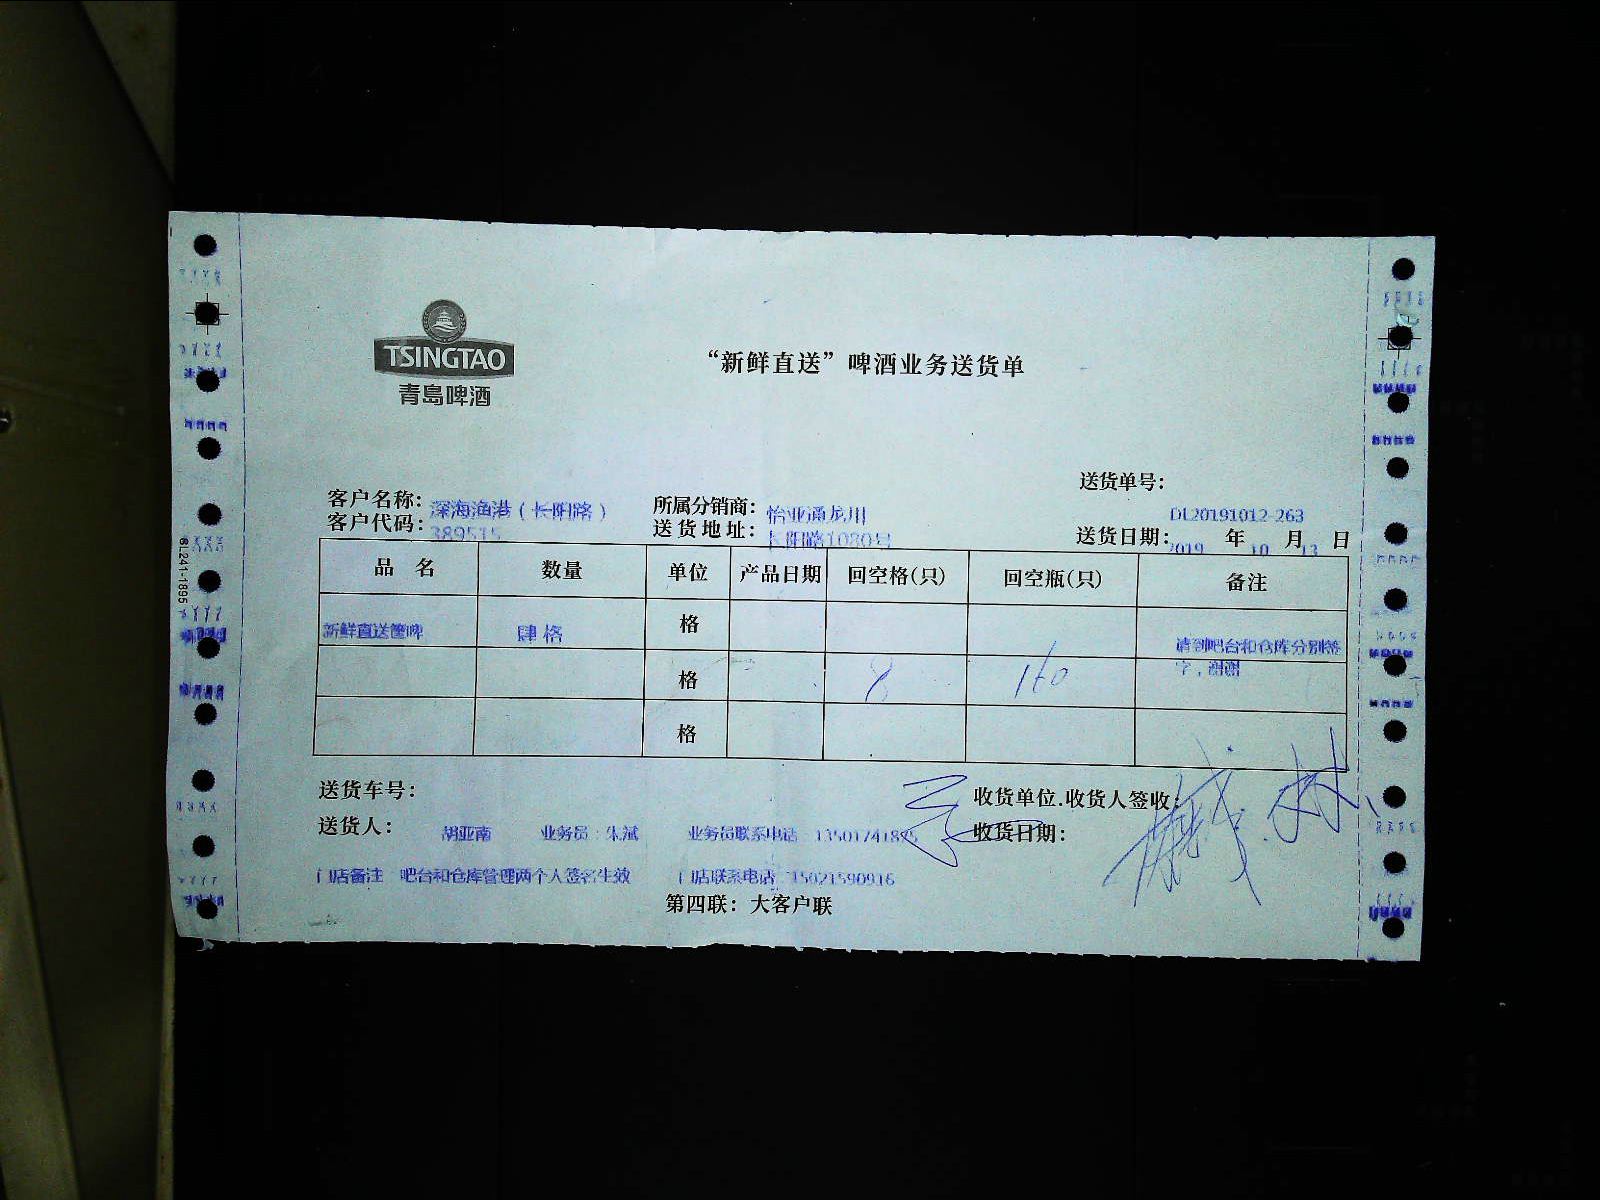 TSINGTAO
青岛啤酒
“新鲜直送”啤酒业务送货单
送货单号：
DL20191012-263
客户名称：深海渔港（长阳路） 所属分销商：怡亚通龙川
客户代码：389515 送货地址：长阳路1080号 送货日期：2019 年 10 月 13 日
品 名 数量 单位 产品日期 回空格(只) 回空瓶(只) 备注
新鲜直送箱啤 肆格 格 请到吧台和仓库分别签
字，谢谢
格 8 160
格
送货车号： 收货单位.收货人签收：
送货人： 胡亚南 业务员：朱斌 业务员联系电话 13501741895 收货日期：
门店备注 吧台和仓库管理两个人签名生效 门店联系电话 15021590916
第四联：大客户联
6L241-1895